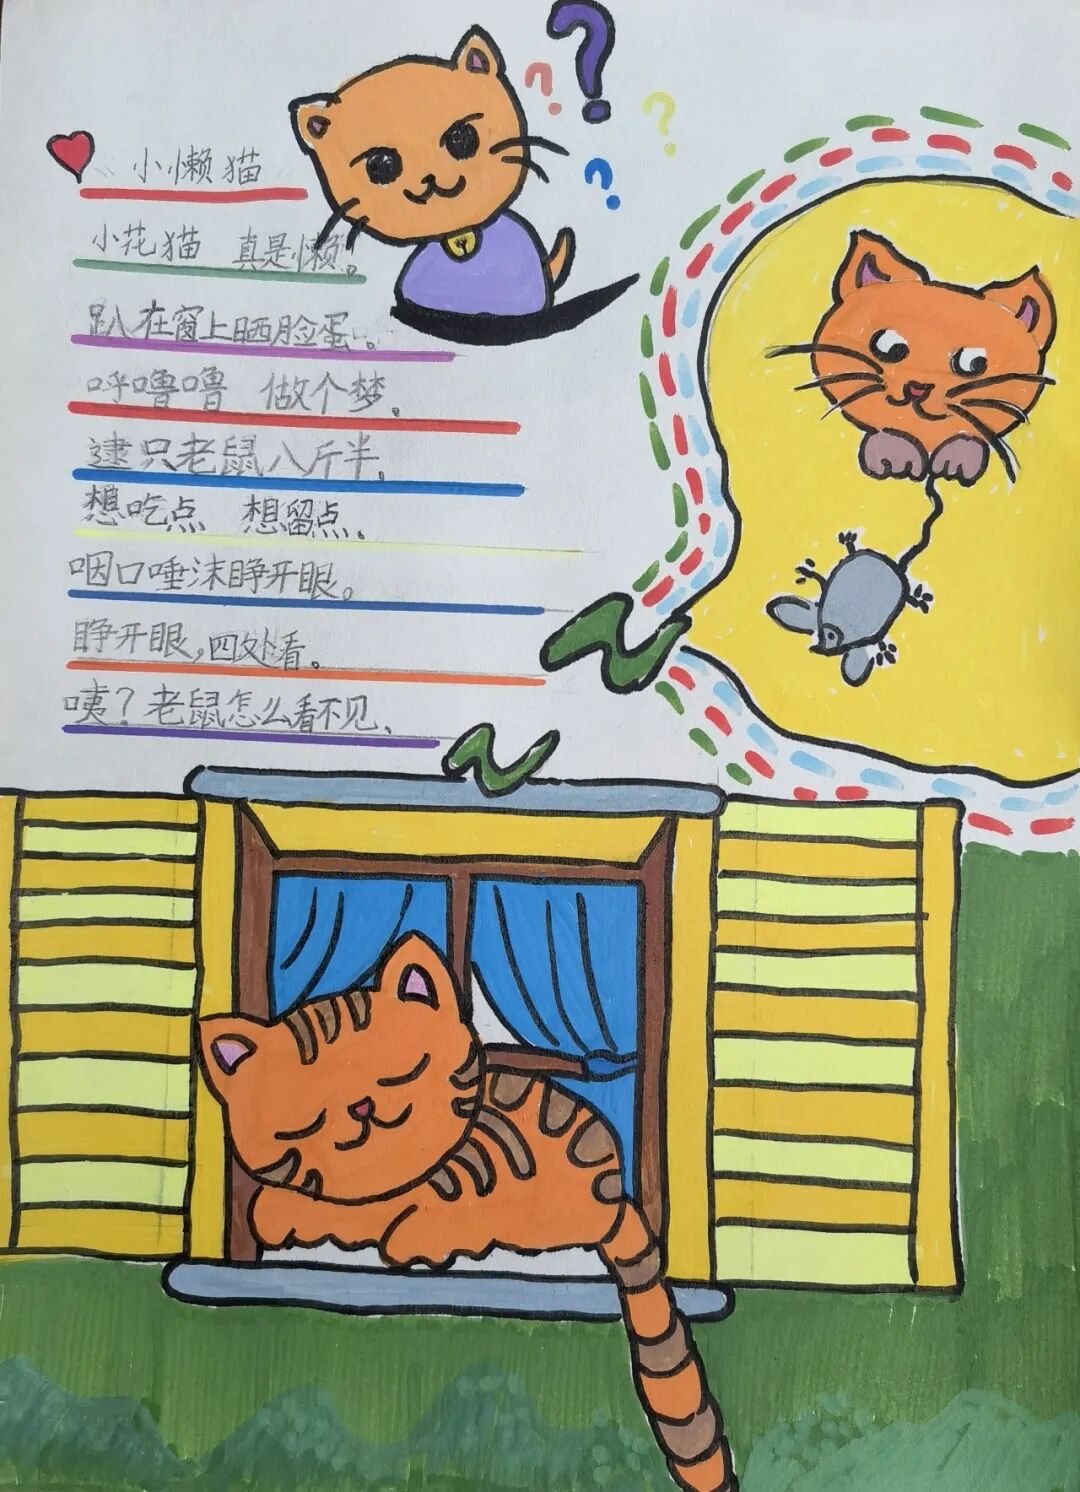 小懒猫
小花猫 真是懒。
趴在窗上晒脸蛋。
呼噜噜 做个梦。
逮只老鼠八斤半。
想吃点 想留点。
咽口唾沫睁开眼。
睁开眼,四处看。
咦?老鼠怎么看不见、